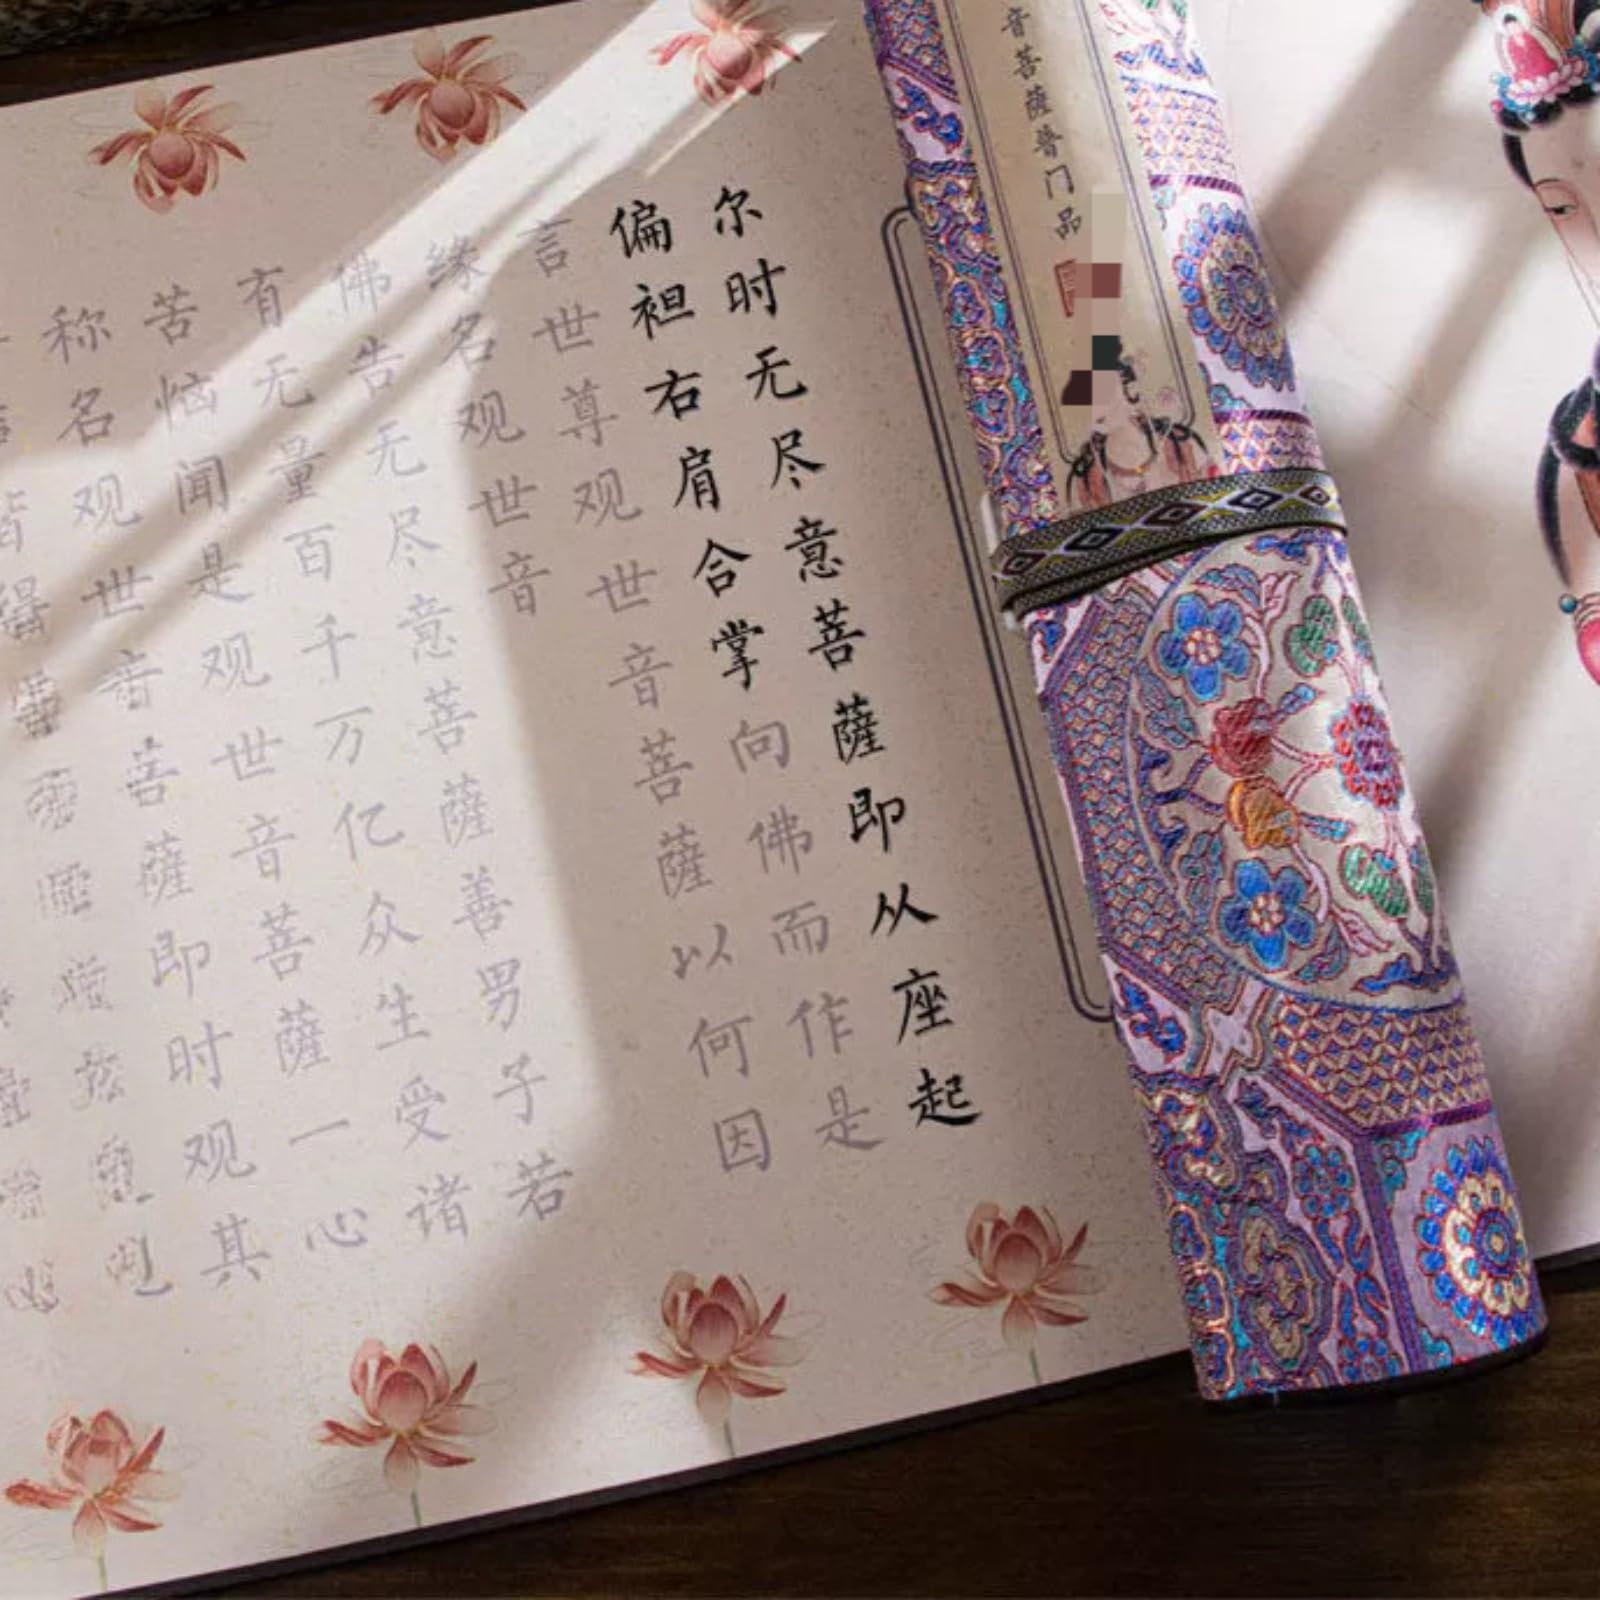 音菩薩普门品
尔时无尽意菩薩即从座起
偏袒右肩合掌向佛而作是
言世尊观世音菩薩以何因
缘名观世音
佛告无尽意菩薩善男子若
有无量百千万亿众生受诸
苦恼闻是观世音菩薩一心
称名观世音菩薩即时观其